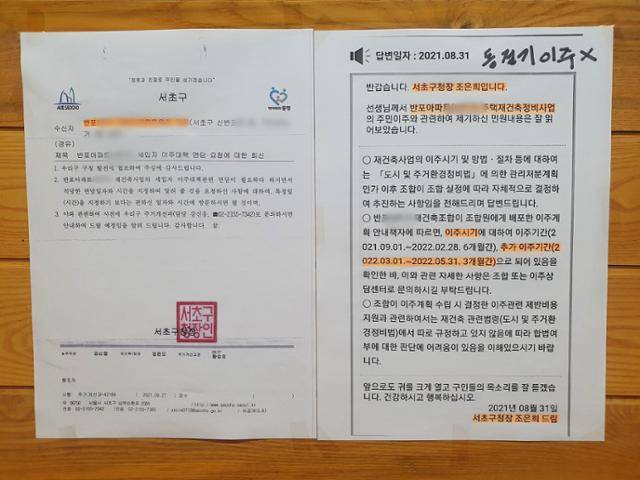 "청렴과 친절로 주민을 섬기겠습니다"
서초구
서초SEOCHO
수신자 반포
(경유)
제목 반포아파트 세입자 이주대책 면담 요청에 대한 회신
1. 우리구 구정 발전에 협조하여 주심에 감사드립니다.
2. 반포아파트 재건축사업의 세입자 이주대책관련 면담이 필요하다 하시면서
적당한 면담일자와 시간을 지정하여 알려 줄 것을 요청하신 사항에 대하여, 특정일
(시간)을 지정하기 보다는 편하신 일자와 시간에 방문하시면 될 것이며,
3. 이와 관련하여 사전에 우리구 주거개선과(담당 강신웅, ☎02-2155-7342)로 문의하시면
안내하여 드릴 예정임을 알려 드립니다. 감사합니다. 끝.
서초구청장
서초구
청장인
협조자
시행 주거개선과-42184 (2021.09.27.) 접수
우 06750 서울시 서초구 남부순환로 2584 / http://www.seocho.seoul.kr
전화 02-2155-7342 전송 02-2155-7365
답변일자 : 2021.08.31
동절기 이주 X
반갑습니다. 서초구청장 조은희입니다.
선생님께서 반포아파트 주택재건축정비사업
의 주민이주와 관련하여 제기하신 민원내용은 잘 읽
어보았습니다.
○ 재건축사업의 이주시기 및 방법ㆍ절차 등에 대하여
는 「도시 및 주거환경정비법」에 의한 관리처분계획
인가 이후 조합이 조합 실정에 따라 자체적으로 결정하
여 추진하는 사항임을 전해드리며 답변드립니다.
○ 반 재건축조합이 조합원에게 배포한 이주계
획 안내책자에 따르면, 이주시기에 대하여 이주기간(2
021.09.01.~2022.02.28. 6개월간), 추가 이주기간(2
022.03.01.~2022.05.31. 3개월간)으로 되어 있음을
확인한 바, 이와 관련 자세한 사항은 조합 또는 이주상
담센터로 문의하시길 부탁드립니다.
○ 조합이 이주계획 수립 시 결정한 이주관련 제반비용
지원과 관련하여서는 재건축 관련법령(도시 및 주거환
경정비법)에서 따로 규정하고 있지 않음에 따라 합법여
부에 대한 판단에 어려움이 있음을 이해있으시기 바랍
니다.
앞으로도 귀를 크게 열고 구민들의 목소리를 잘 듣겠습
니다. 건강하시고 행복하십시오.
2021년 08월 31일
서초구청장 조은희 드림